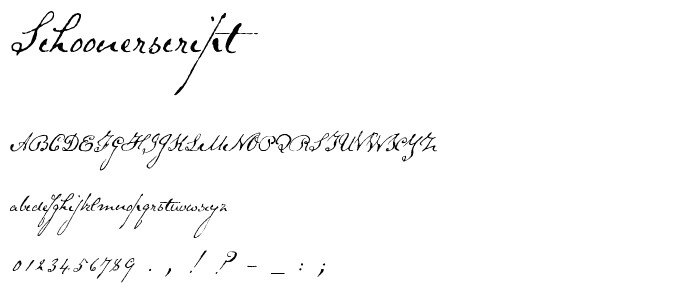 Schoonerscript
ABCDEFGHIJKLMNOPQRSTUVWXYZ
abcdefghijklmnopqrstuvwxyz
0123456789 . , ! ? - _ : ;